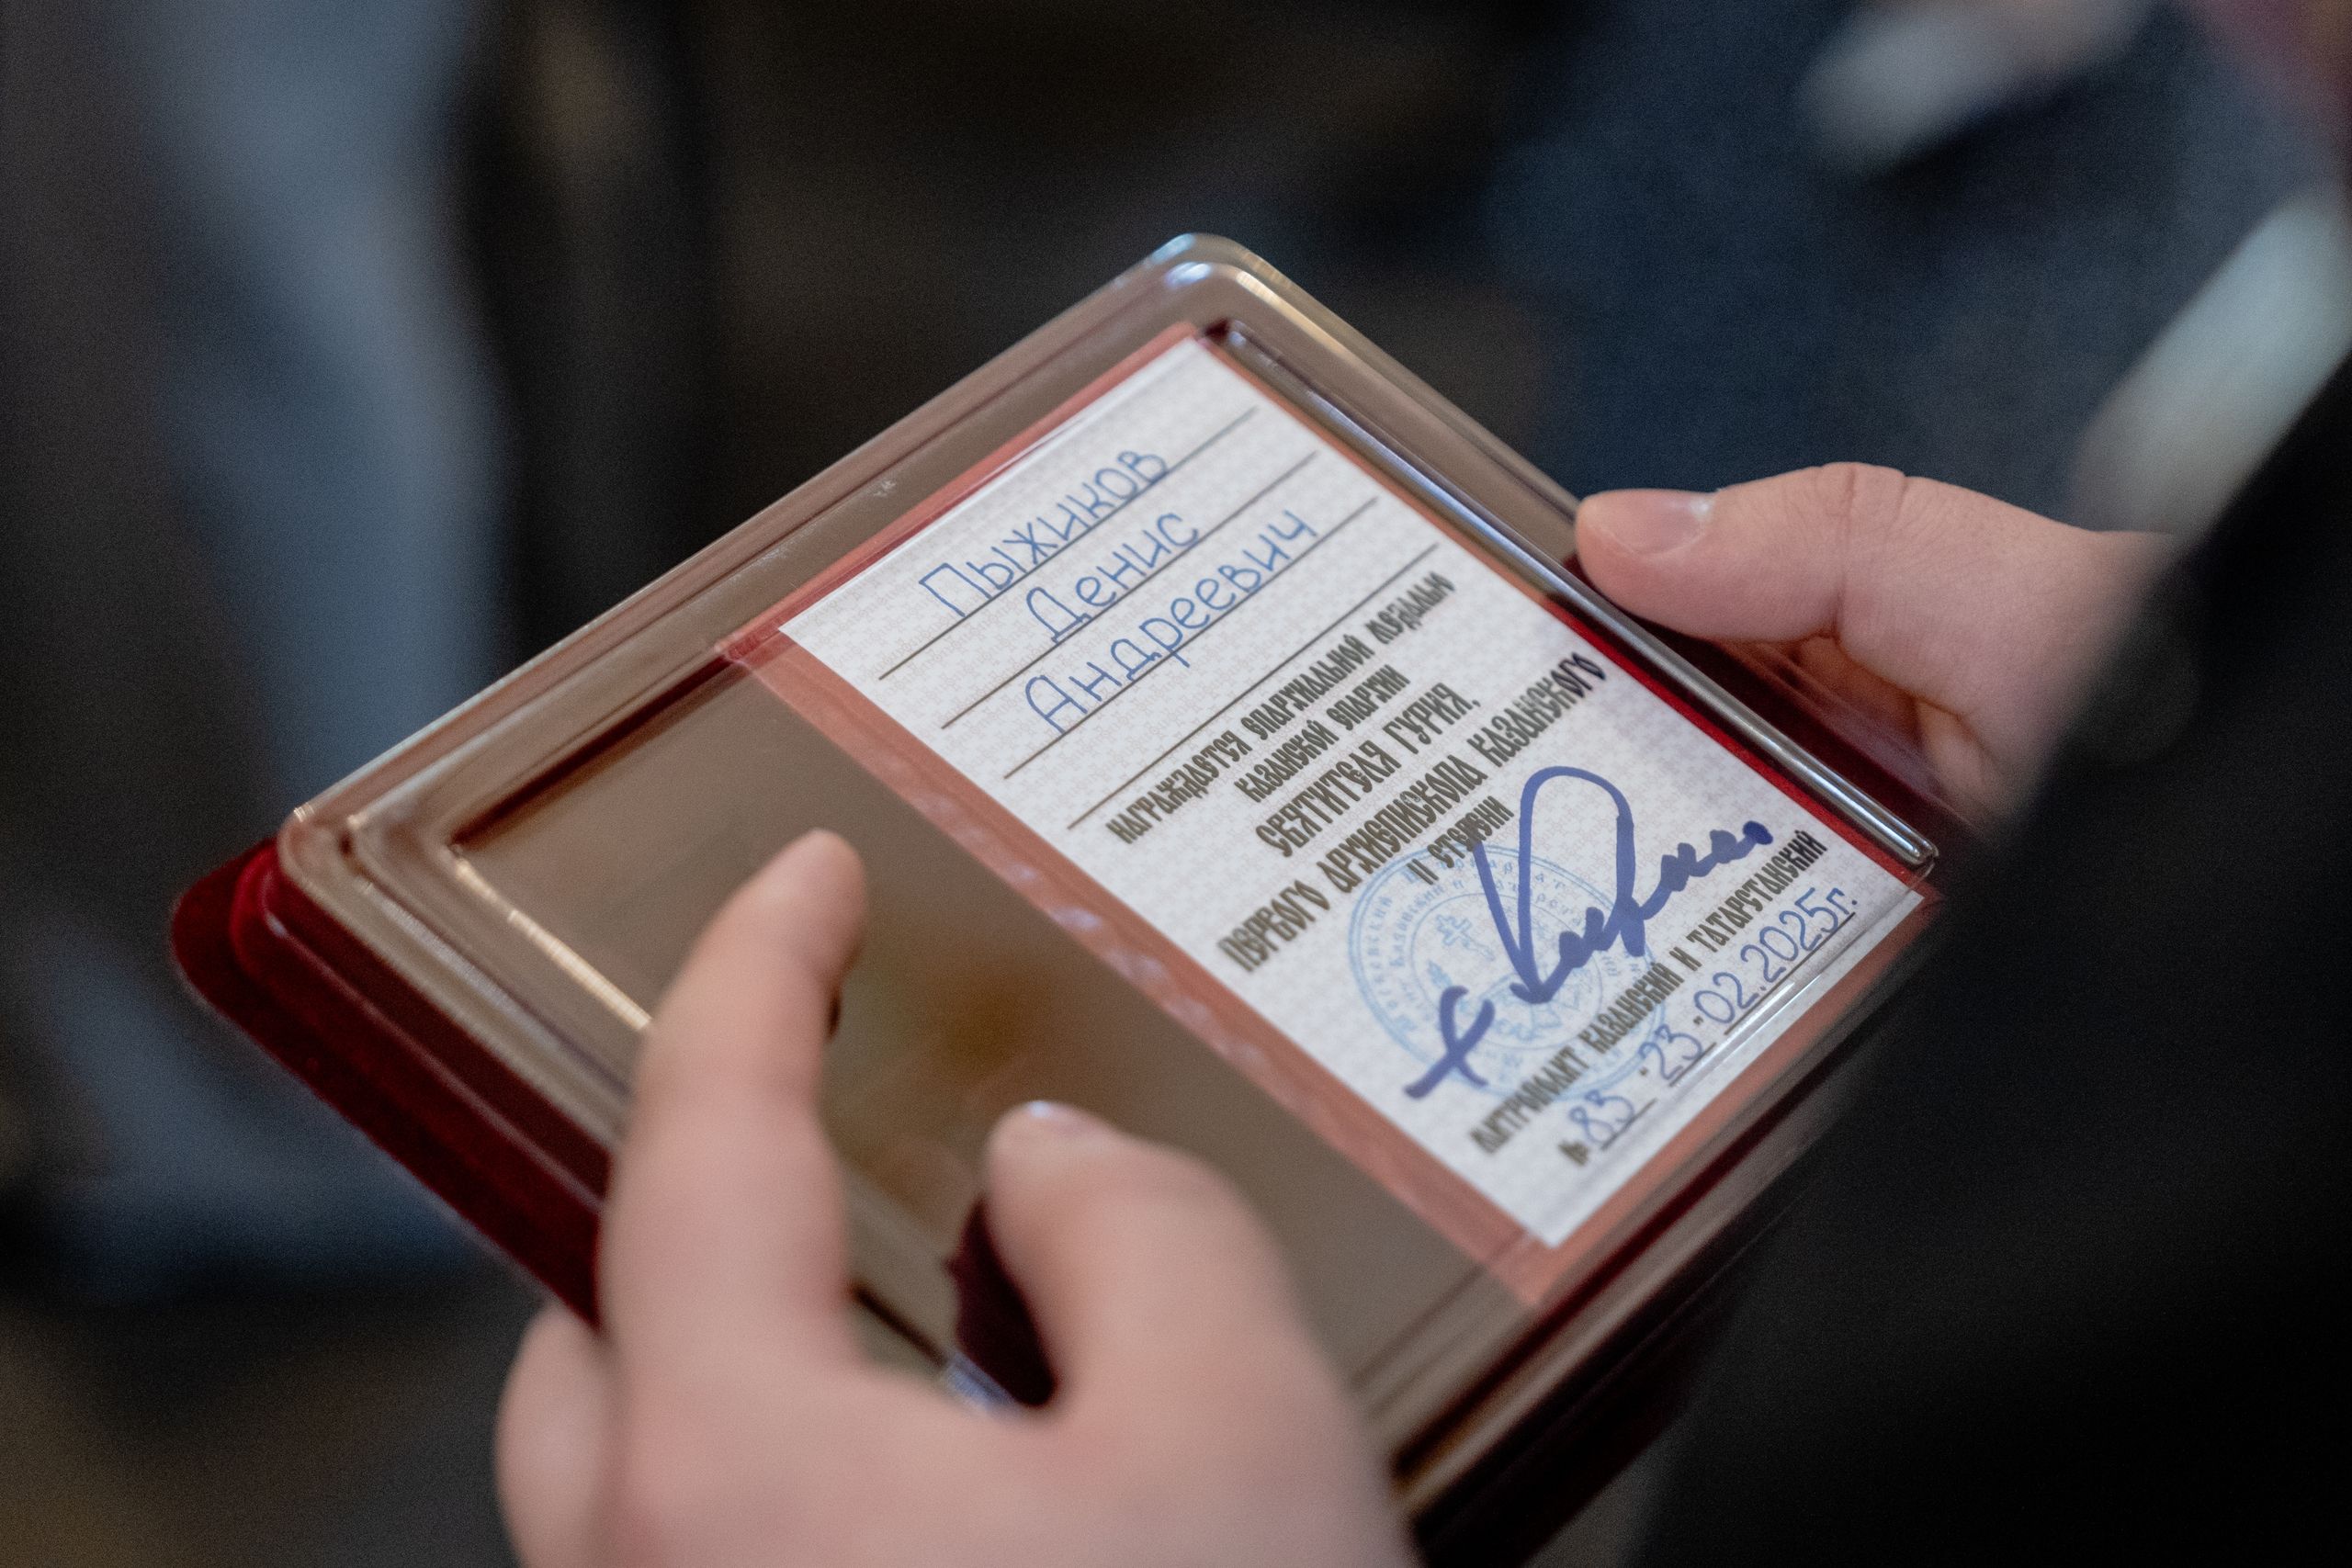 Пыжиков
Денис
Андреевич
награждается епархиальной медалью
Казанской епархии
святителя Гурия,
первого архиепископа Казанского
II степени
митрополит Казанский и Татарстанский
№ 83 "23" 02.2025г.